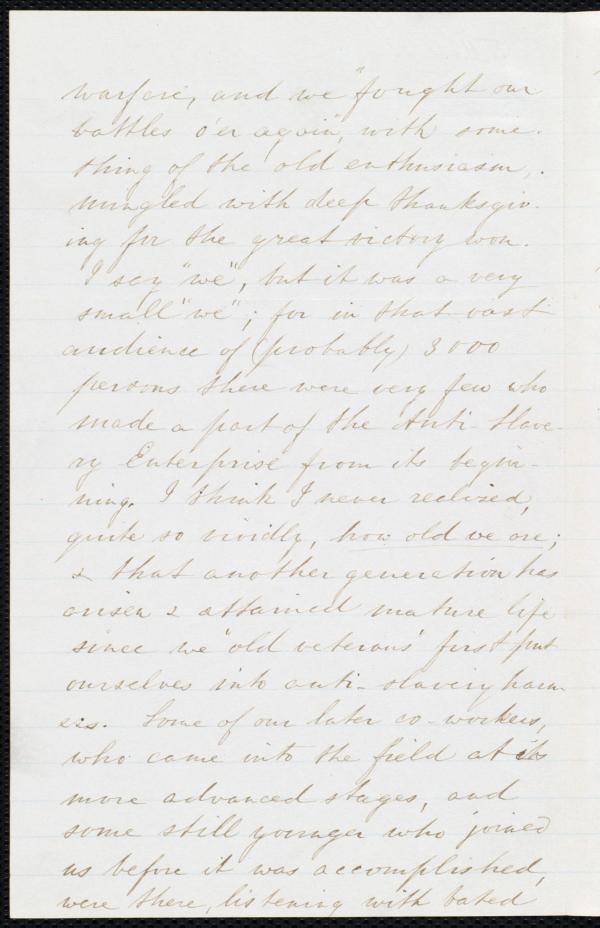 warfare, and we "fought our
battles o'er again, with some-
thing of the old enthusiasm,
mingled with deep thanksgiv-
ing for the great victory won.
I say "we", but it was a very
small "we"; for in that vast
audience of (probably) 3000
persons there were very few who
made a part of the Anti-Slave-
ry Enterprise from its begin-
ning. I think I never realized,
quite so vividly, how old we are;
& that another generation has
arisen & attained mature life
since we "old veterans" first put
ourselves into anti-slavery harn-
ess. Some of our later co-workers,
who came into the field at its
more advanced stages, and
some still younger who joined
us before it was accomplished,
were there, listening with bated